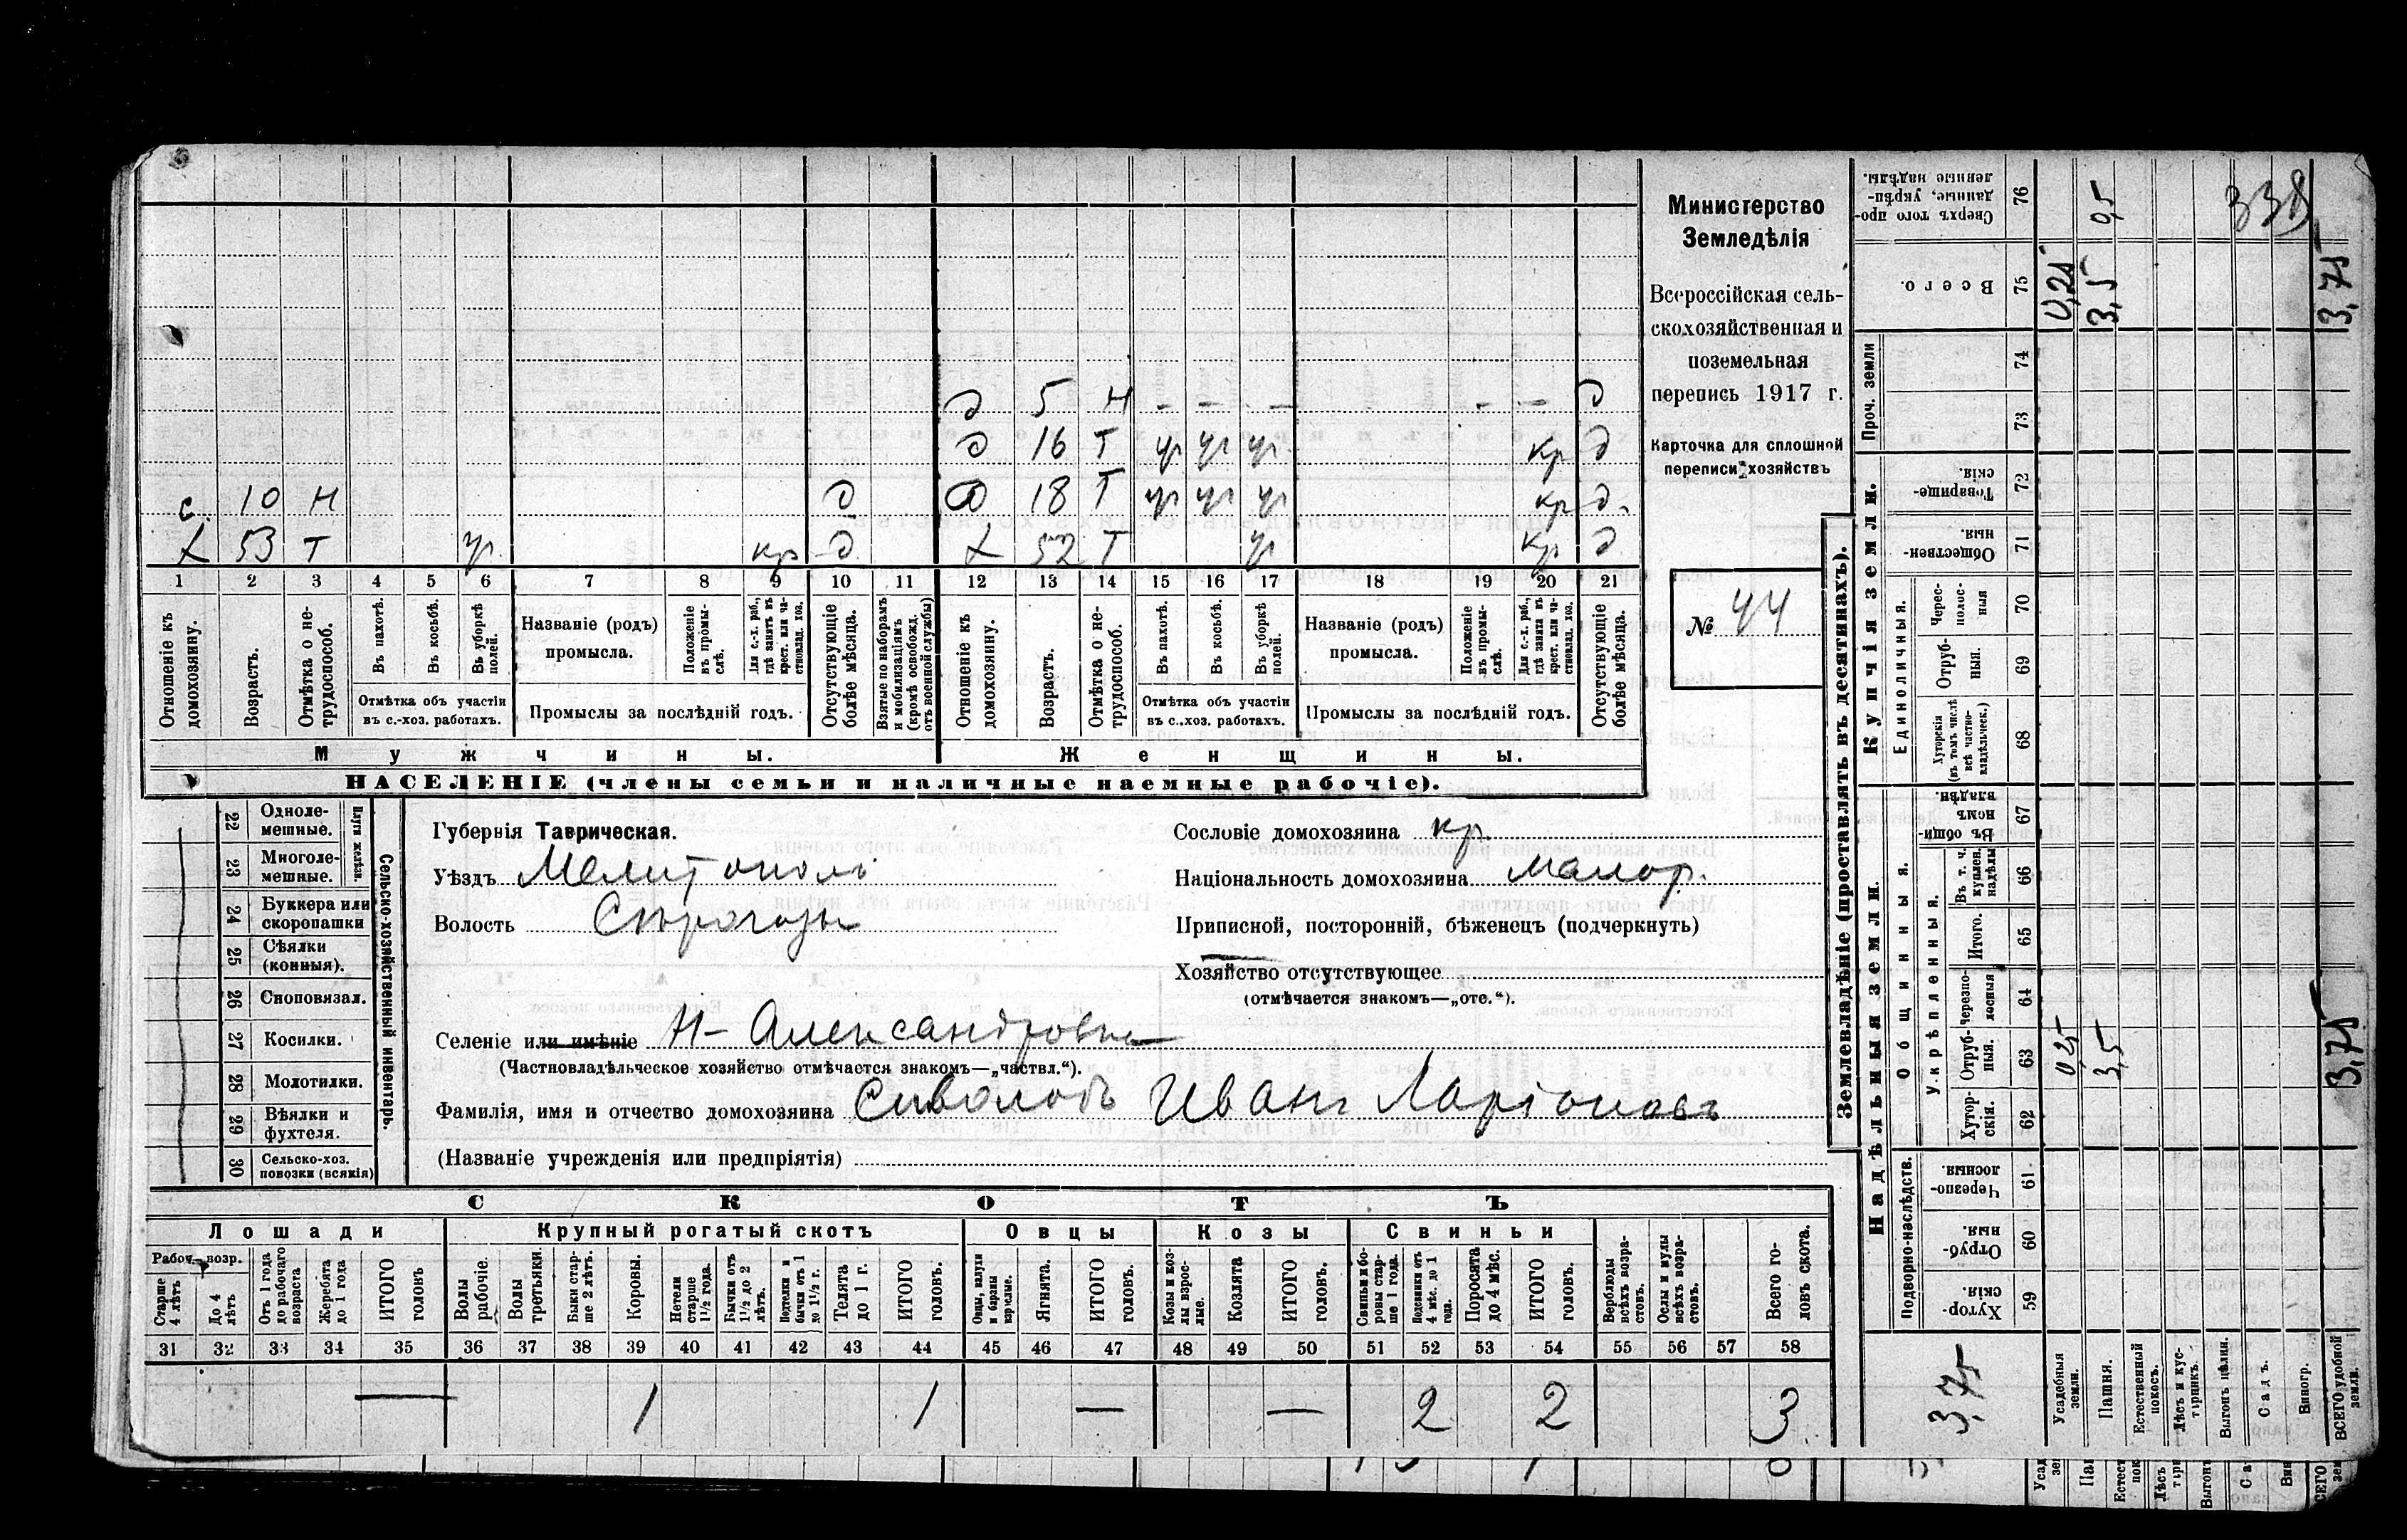 с. 10 Н д
х 53 Т уг кр д
д 5 Н - - - - - д
д 16 Т уг уг уг кр д
д 18 Т уг уг уг кр д.
х 52 Т уг кр д
1 2 3 4 5 6 7 8 9 10 11 12 13 14 15 16 17 18 19 20 21
Отношеніе къ домохозяину.
Возрастъ.
Отмѣтка о не-трудоспособ.
Въ пахотѣ.
Въ косьбѣ.
Въ уборкѣ полей.
Отмѣтка объ участіи
въ с.-хоз. работахъ.
Названіе (родъ)
промысла.
Положеніе въ промы-слѣ.
Для с.-х. раб., гдѣ занятъ въ крест. или ча-стновлад. хоз.
Промыслы за послѣдній годъ.
Отсутствующіе болѣе мѣсяца.
Взятые по наборамъ и мобилизаціямъ (кромѣ освобожд. отъ военной службы)
Отношеніе къ домохозяину.
Возрастъ.
Отмѣтка о не-трудоспособ.
Въ пахотѣ.
Въ косьбѣ.
Въ уборкѣ полей.
Отмѣтка объ участіи
въ с.-хоз. работахъ.
Названіе (родъ)
промысла.
Положеніе въ промы-слѣ.
Для с.-х. раб., гдѣ занята въ крест. или ча-стновлад. хоз.
Промыслы за послѣдній годъ.
Отсутствующіе болѣе мѣсяца.
Мужчины. Женщины.
НАСЕЛЕНІЕ (члены семьи и наличные наемные рабочіе).
Министерство
Земледѣлія
Всероссійская сель-
скохозяйственная и
поземельная
перепись 1917 г.
Карточка для сплошной
переписи хозяйствъ
№ 44
22 Одноле-мешные.
23 Многоле-мешные.
Плуги желѣзн.
24 Буккера или скоропашки
25 Сѣялки (конныя).
26 Сноповязал.
27 Косилки.
28 Молотилки.
29 Вѣялки и фухтеля.
30 Сельско-хоз. повозки (всякія)
Сельско-хозяйственный инвентарь.
Губернія Таврическая.
Уѣздъ Мелитополь
Волость Сѣрогозы
Сословіе домохозяина кр.
Національность домохозяина малор.
Приписной, посторонній, бѣженецъ (подчеркнуть)
Хозяйство отсутствующее
(отмѣчается знакомъ—„отс.“).
Селеніе или имѣніе Н-Александровка
(Частновладѣльческое хозяйство отмѣчается знакомъ—„частвл.“).
Фамилія, имя и отчество домохозяина Сиволобъ Иванъ Ларіоновъ
(Названіе учрежденія или предпріятія)
СКОТЪ
Лошади Крупный рогатый скотъ Овцы Козы Свиньи
Рабоч. возр.
Старше 4 лѣтъ
До 4 лѣтъ
Отъ 1 года до рабочаго возраста
Жеребята до 1 года
ИТОГО головъ
Волы рабочіе.
Волы третьяки.
Быки стар-ше 2 лѣтъ.
Коровы.
Нетели старше 1½ года.
Бычки отъ 1½ до 2 лѣтъ.
Подтелки и бычки отъ 1 до 1½ г.
Телята до 1 г.
ИТОГО головъ.
Овцы, валухи и бараны взрослые.
Ягнята.
ИТОГО головъ.
Козы и коз-лы взрос-лые.
Козлята
ИТОГО головъ.
Свиньи и бо-ровы стар-ше 1 года.
Подсвинки отъ 4 мѣс. до 1 года.
Поросята до 4 мѣс.
ИТОГО головъ.
Верблюды всѣхъ возра-стовъ.
Ослы и мулы всѣхъ возра-стовъ.
Всего го-ловъ скота.
31 32 33 34 35 36 37 38 39 40 41 42 43 44 45 46 47 48 49 50 51 52 53 54 55 56 57 58
— 1 1 — — 2 2 3
Землевладѣніе (проставлять въ десятинахъ).
Надѣльныя земли. Купчія земли.
Проч. земли
Подворно-наслѣдств.
Общинныя.
Укрѣпленныя.
Единоличныя.
Сверхъ того про-данные, укрѣп-ленные надѣлы. 76 0,5 338
Всего. 75 0,25 3,5 3,75
74
73
Товарище-скія. 72
Обществен-ныя 71
Черес-полос-ныя 70
Отруб-ныя. 69
Хуторскія (въ томъ числѣ всѣ частно-владѣльческ.) 68
Въ общин-номъ владѣн. 67
Въ т. ч. куплен. надѣлы 66
Итого. 65
Черезпо-лосныя 64
Отруб-ныя. 63 0 25 3,5 3,75
Хутор-скія. 62
Черезпо-лосныя. 61
Отруб-ныя. 60
Хутор-скія. 59
3,75
Усадебныя земли.
Пашня.
Естественный покосъ.
Лѣсъ и кус-тарникъ.
Выгонъ цѣлин.
Садъ.
Виногр.
ВСЕГО удобной земли.